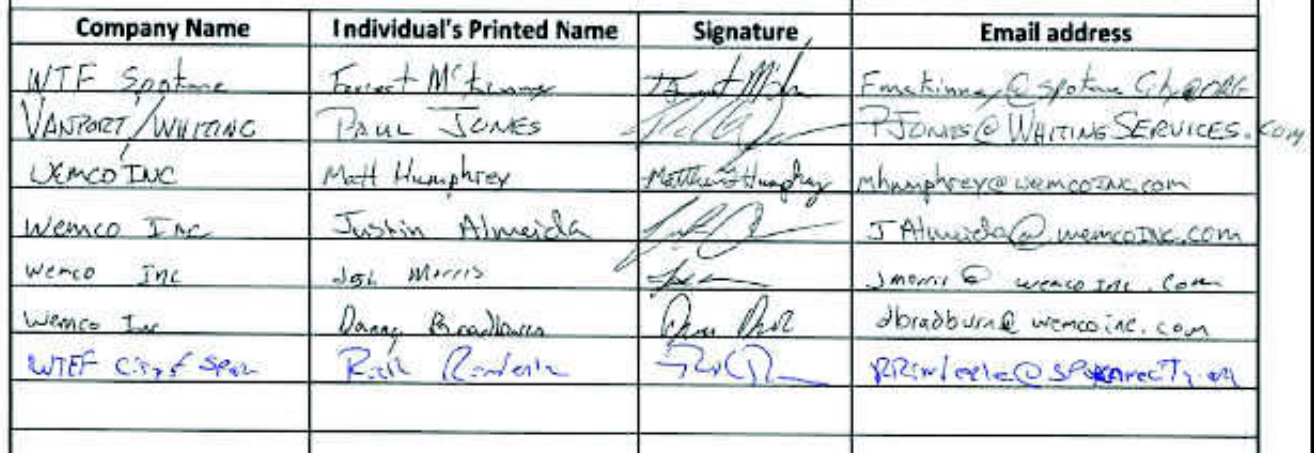 Company Name Individual's Printed Name Signature Email address
WTF Spokane Forrest McKinney Fmckinney@spokane City.ORG
VANPORT/WHITING PAUL JONES PJONES@WHITINGSERVICES.COM
WEMCO INC Matt Humphrey Matthew Humphrey mhumphrey@wemcoINC.com
Wemco Inc Justin Almeida JAlmeida@wemcoINC.com
Wemco Inc Josh Morris Jmorris@wemco INC.Com
Wemco Inc Danny Bradburn dbradburn@wemcoinc.com
WTEF City of Rick